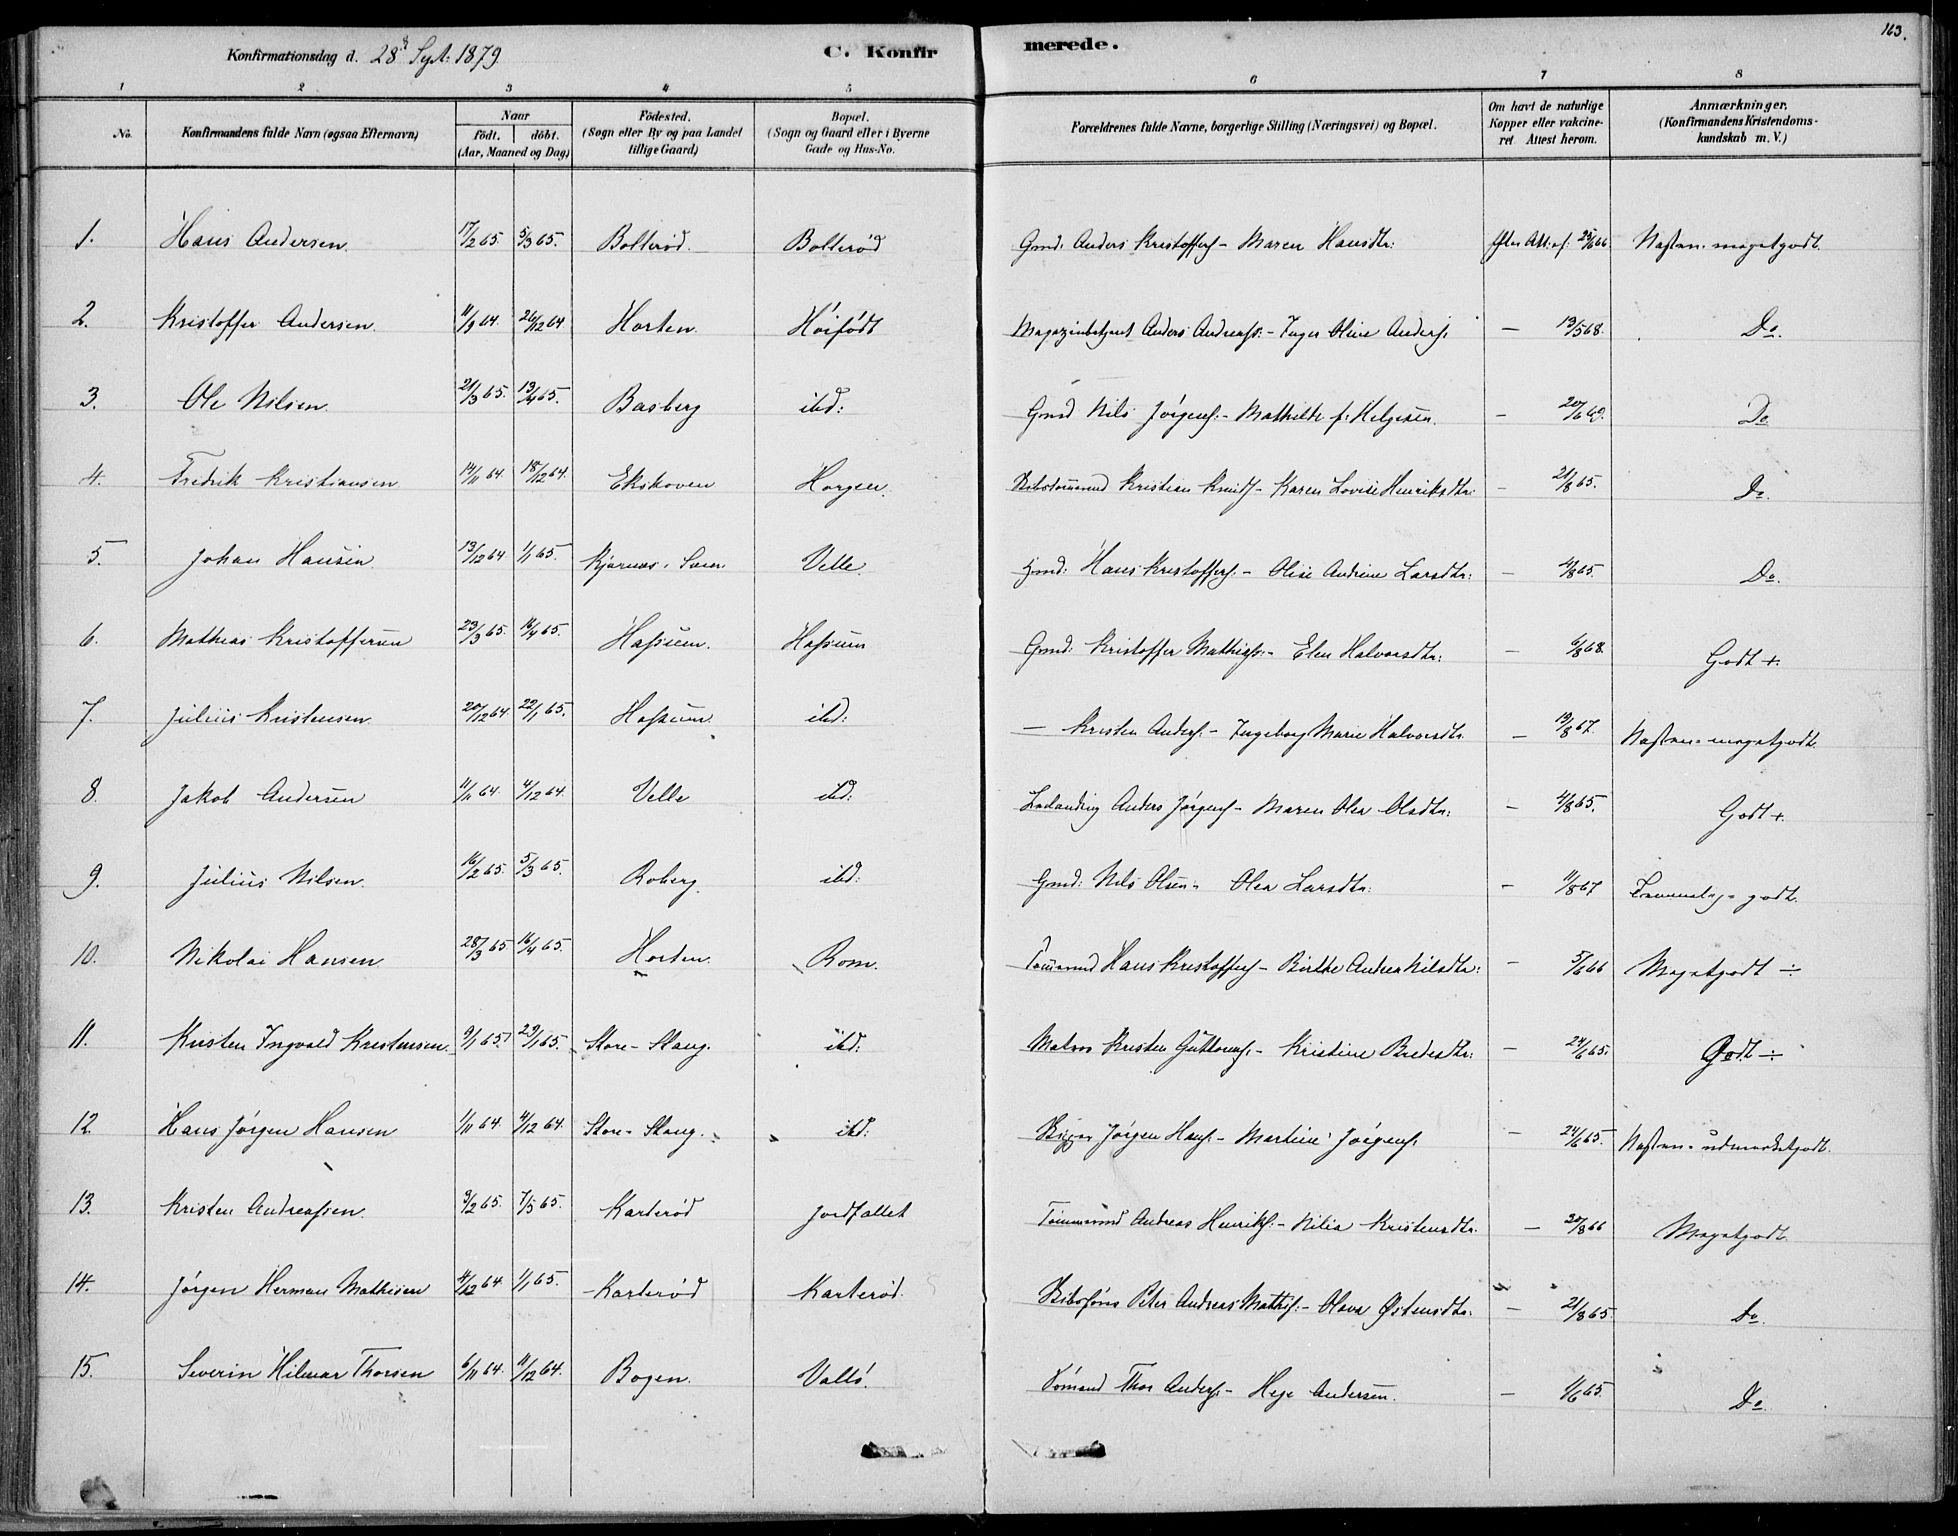 163.
Konfirmationsdag d. 28de Sept. 1879. C. Konfirmerede.
1 2 3 4 5 6 7 8
No. Konfirmandens fulde Navn (ogsaa Efternavn) Naar födt. döbt. (Aar, Maaned og Dag) Födested. (Sogn eller By og paa Landet tillige Gaard) Bopæl. (Sogn og Gaard eller i Byerne Gade og Hus-No. Forældrenes fulde Navne, borgerlige Stilling (Næringsvei) og Bopæl. Om havt de naturlige Kopper eller vakcineret Attest herom. Anmærkninger. (Konfirmandens Kristendomskundskab m. V.)
1. Hans Andersen. 17/2 65. 5/3 65. Bolteröd. Bolteröd Gmd: Anders Kristoffers. - Maren Hansdtr: efter Att: af: 25/6 66 Næsten meget godt.
2. Kristoffer Andersen. 11/9 64. 26/12 64 Horten. Höifödt Magazinbetjent Anders Andreass: - Inger Oline Anders. — 19/5 68. Do.
3. Ole Nilsen. 21/3 65. 19/4 65. Basberg ibd: Gmd Nils Jörgens: - Mathilde f: Helgesen. - 20/6 69. Do
4. Fredrik Kristiansen 14/11 64. 18/12 64. Ekskoven Horgen. Skibstömmermd Kristian Knuds - Karen Lovise Henriksdtr: - 21/8 65. Do.
5. Johan Hansen 13/12 64 1/1 65. Kjærnæs i Sem Velle. Gmd: Hans Kristoffers. - Olise Andrine Larsdtr: - 4/8 65. Do.
6. Mathias Kristoffersen 29/3 65. 16/4 65. Hassum. Hassum Gmd: Kristoffer Mathias: - Elen Halvorsdtr: - 6/8 68. Godt +.
7. Julius Kristensen. 20/12 64 22/1 65. Hassum ibd: — Kristen Anders. - Ingeborg Marie Halvorsdtr. - 19/8 67. Næsten meget godt.
8. Jakob Andersen 11/11 64. 4/12 64. Velle ibd: Anders Jörgens - Maren Olea Olsdtr: - 4/8 65. Godt +.
9. Julius Nilsen. 16/2 65. 5/3 65. Roberg. ibd: Gmd: Nils Olsen - Olea Larsdtr: - 11/8 67 Temmelig godt.
10. Nikolai Hansen. 28/3 65. 16/4 65. Horten. Rom. Tömmermd Hans Kristoffers - Birthe Andrea Nilsdtr: - 5/6 66 Meget godt ÷
11. Kristen Ingvald Kristensen. 9/1 65. 29/1 65. Store-Stang. ibd: Matros Kristen Guttorms. - Kristine Bredesdtr: - 24/6 65. Godt ÷
12. Hans Jörgen Hansen 1/11 64. 4/12 64. Store-Stang. ibd: Skipper Jörgen Hans. - Martine Jörgens. - 24/6 65. Næsten udmærket godt.
13. Kristen Andreassen. 3/2 65. 7/5 65. Karteröd Jordfallet Tömmermd Andreas Henriks. - Nilia Kristensdtr. - 20/8 66 Meget godt
14. Jörgen Herman Mathisen 4/12 64. 1/1 65. Karteröd Karteröd. Skibsförer Peter Andreas Mathis. - Olava Østensdtr: - 21/8 65. Do.
15. Severin Hilmar Thorsen 6/11 64. 11/12 64. Bogen. Vallö. Sömand Thor Anders. - Hege Andersen. - 1/6 65. Do.